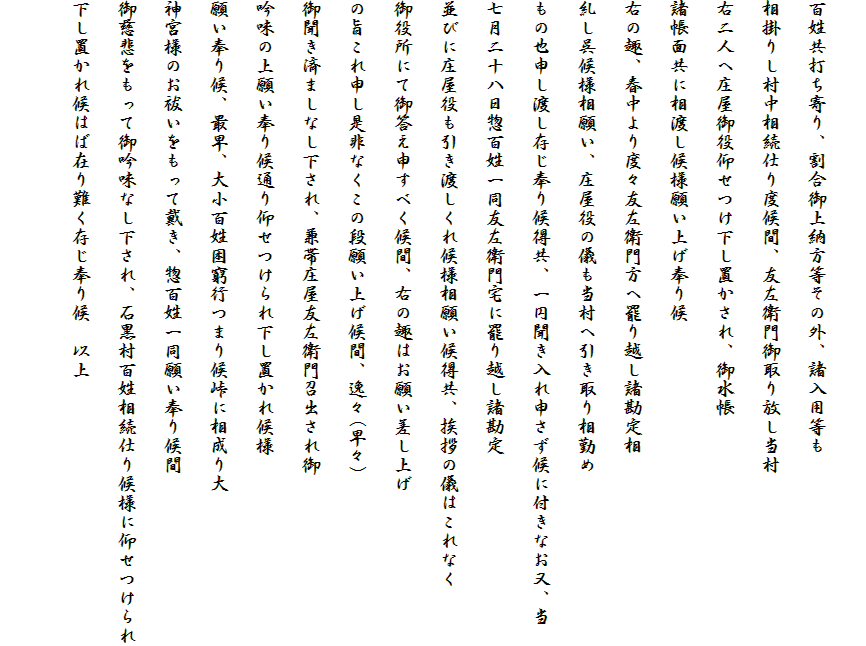 百姓共打ち寄り、割合御上納方等その外、諸入用等も
相掛りし村中相続仕り度候間、友左衛門御取り放し当村
右二人へ庄屋御役仰せつけ下し置かされ、御水帳
諸帳面共に相渡し候様願い上げ奉り候
右の趣、春中より度々友左衛門方へ罷り越し諸勘定相
糺し呉候様相願い、庄屋役の儀も当村へ引き取り相勤め
もの也申し渡し存じ奉り候得共、一円聞き入れ申さず候に付きなお又、当
七月二十八日惣百姓一同友左衛門宅に罷り越し諸勘定
並びに庄屋役も引き渡しくれ候様相願い候得共、挨拶の儀はこれなく
御役所にて御答え申すべく候間、右の趣はお願い差し上げ
の旨これ申し是非なくこの段願い上げ候間、逸々(早々)
御聞き済ましなし下され、兼帯庄屋友左衛門召出され御
吟味の上願い奉り候通り仰せつけられ下し置かれ候様
願い奉り候、最早、大小百姓困窮行つまり候峠に相成り大
神宮様のお祓いをもって戴き、惣百姓一同願い奉り候間
御慈悲をもって御吟味なし下され、石黒村百姓相続仕り候様に仰せつけられ
下し置かれ候はば在り難く存じ奉り候　以上